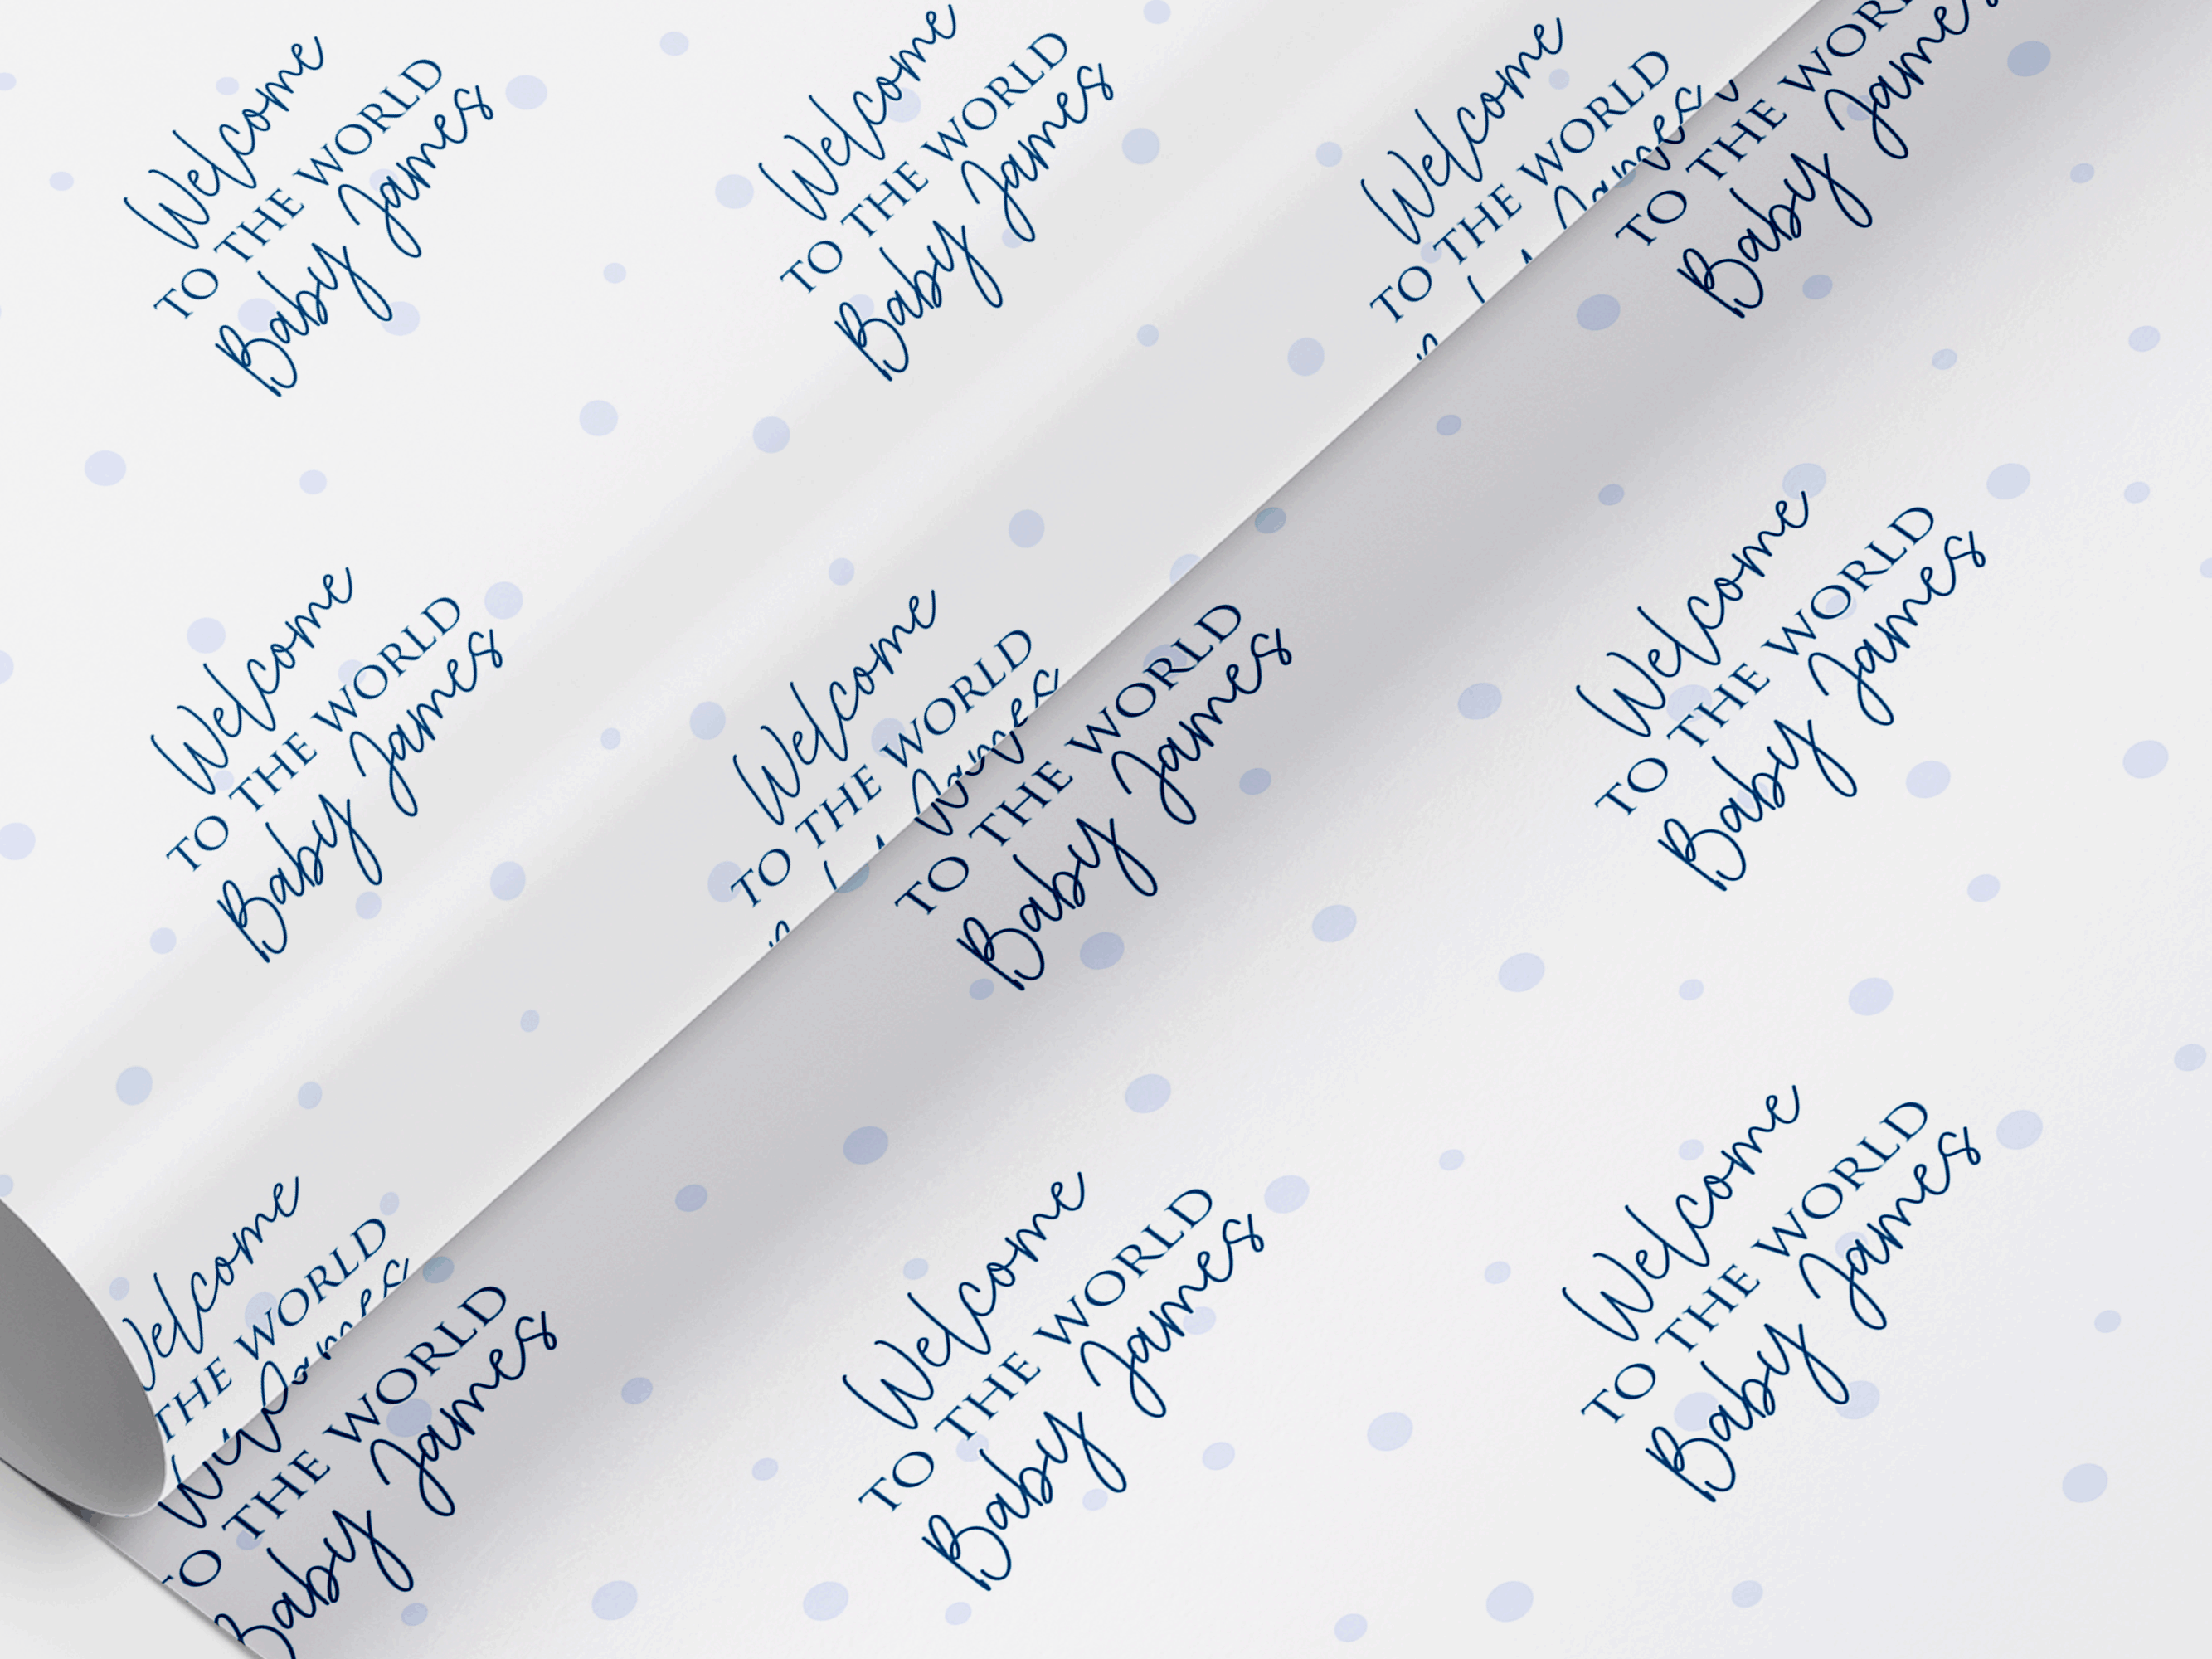 Welcome
TO THE WORLD
Baby James
Welcome
TO THE WORLD
Baby James
Welcome
TO THE WORLD
James
TO THE WOR
Baby James
Welcome
TO THE WORLD
Baby James
Welcome
TO THE WORLD
James
TO THE WORLD
Baby James
Welcome
TO THE WORLD
Baby James
elcome
THE WORLD
James
TO THE WORLD
Baby James
Welcome
TO THE WORLD
Baby James
Welcome
TO THE WORLD
Baby James